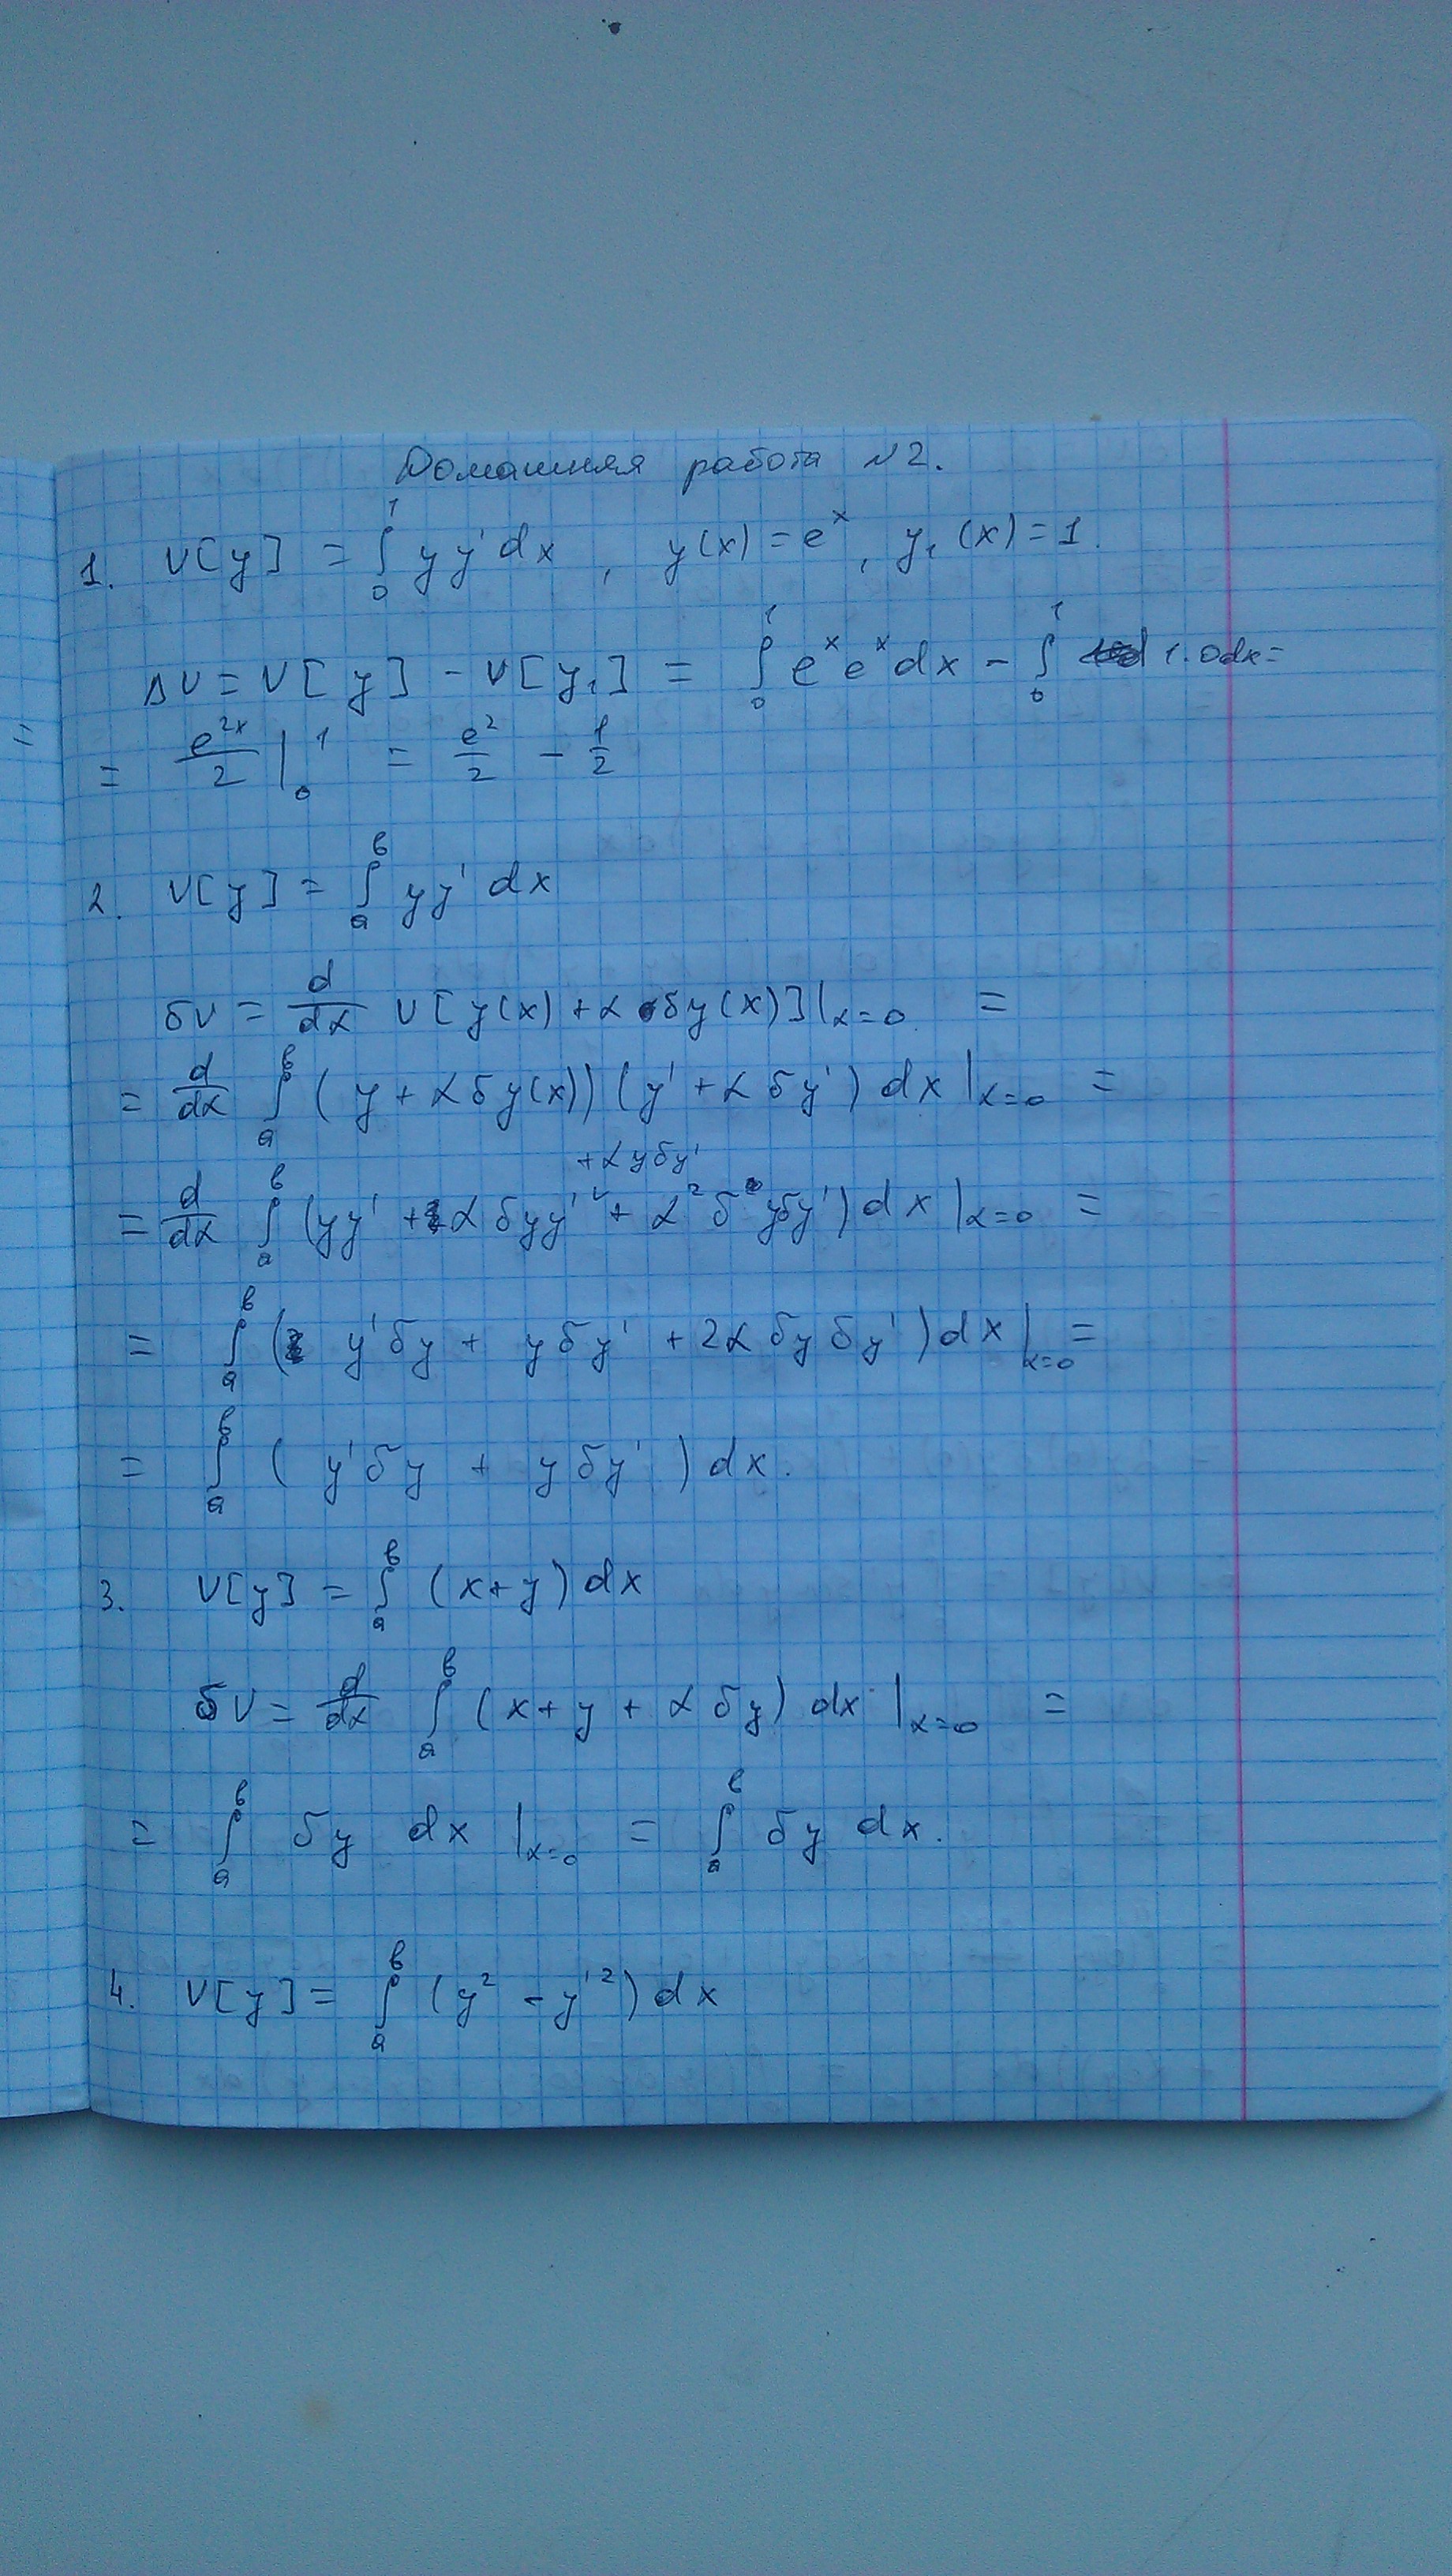 Домашняя работа №2.
1. V[y] = ∫₀¹ y y' dx , y(x) = eˣ , y₁(x) = 1.
ΔV = V[y] - V[y₁] = ∫₀¹ eˣ eˣ dx - ∫₀¹ 1·0dx =
= e²ˣ/2 |₀¹ = e²/2 - 1/2
2. V[y] = ∫ₐᵇ y y' dx
δV = d/dα V[y(x) + α δy(x)]|α=0 =
= d/dα ∫ₐᵇ (y + α δy(x)) (y' + α δy') dx |α=0 =
+ α y δy'
= d/dα ∫ₐᵇ (yy' + α δy y' + α² δy δy') dx |α=0 =
= ∫ₐᵇ (y' δy + y δy' + 2α δy δy') dx |α=0 =
= ∫ₐᵇ (y' δy + y δy') dx.
3. V[y] = ∫ₐᵇ (x+y) dx
δV = d/dα ∫ₐᵇ (x + y + α δy) dx |α=0 =
= ∫ₐᵇ δy dx |α=0 = ∫ₐᵇ δy dx.
4. V[y] = ∫ₐᵇ (y² - y'²) dx